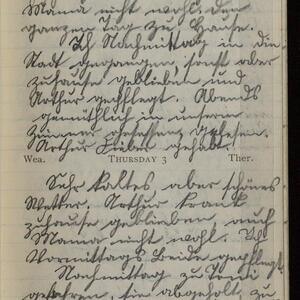 Mama nicht wohl. Den
ganzen Tag zu Hause.
Ich Nachmittag in die
Stadt gegangen, sonst aber
zuhause geblieben und
Arthur gepflegt. Abends
gemüthlich in unserem
Zimmer gesessen gelesen.
Arthur Fieber gehabt.
Wea. THURSDAY 3 Ther.
Sehr kaltes, aber schönes
Wetter. Arthur krank
zuhause geblieben auch
Mama nicht wohl. Ich
Vormittags beide gepflegt
Nachmittag zu
gefahren, sie abgeholt, zu